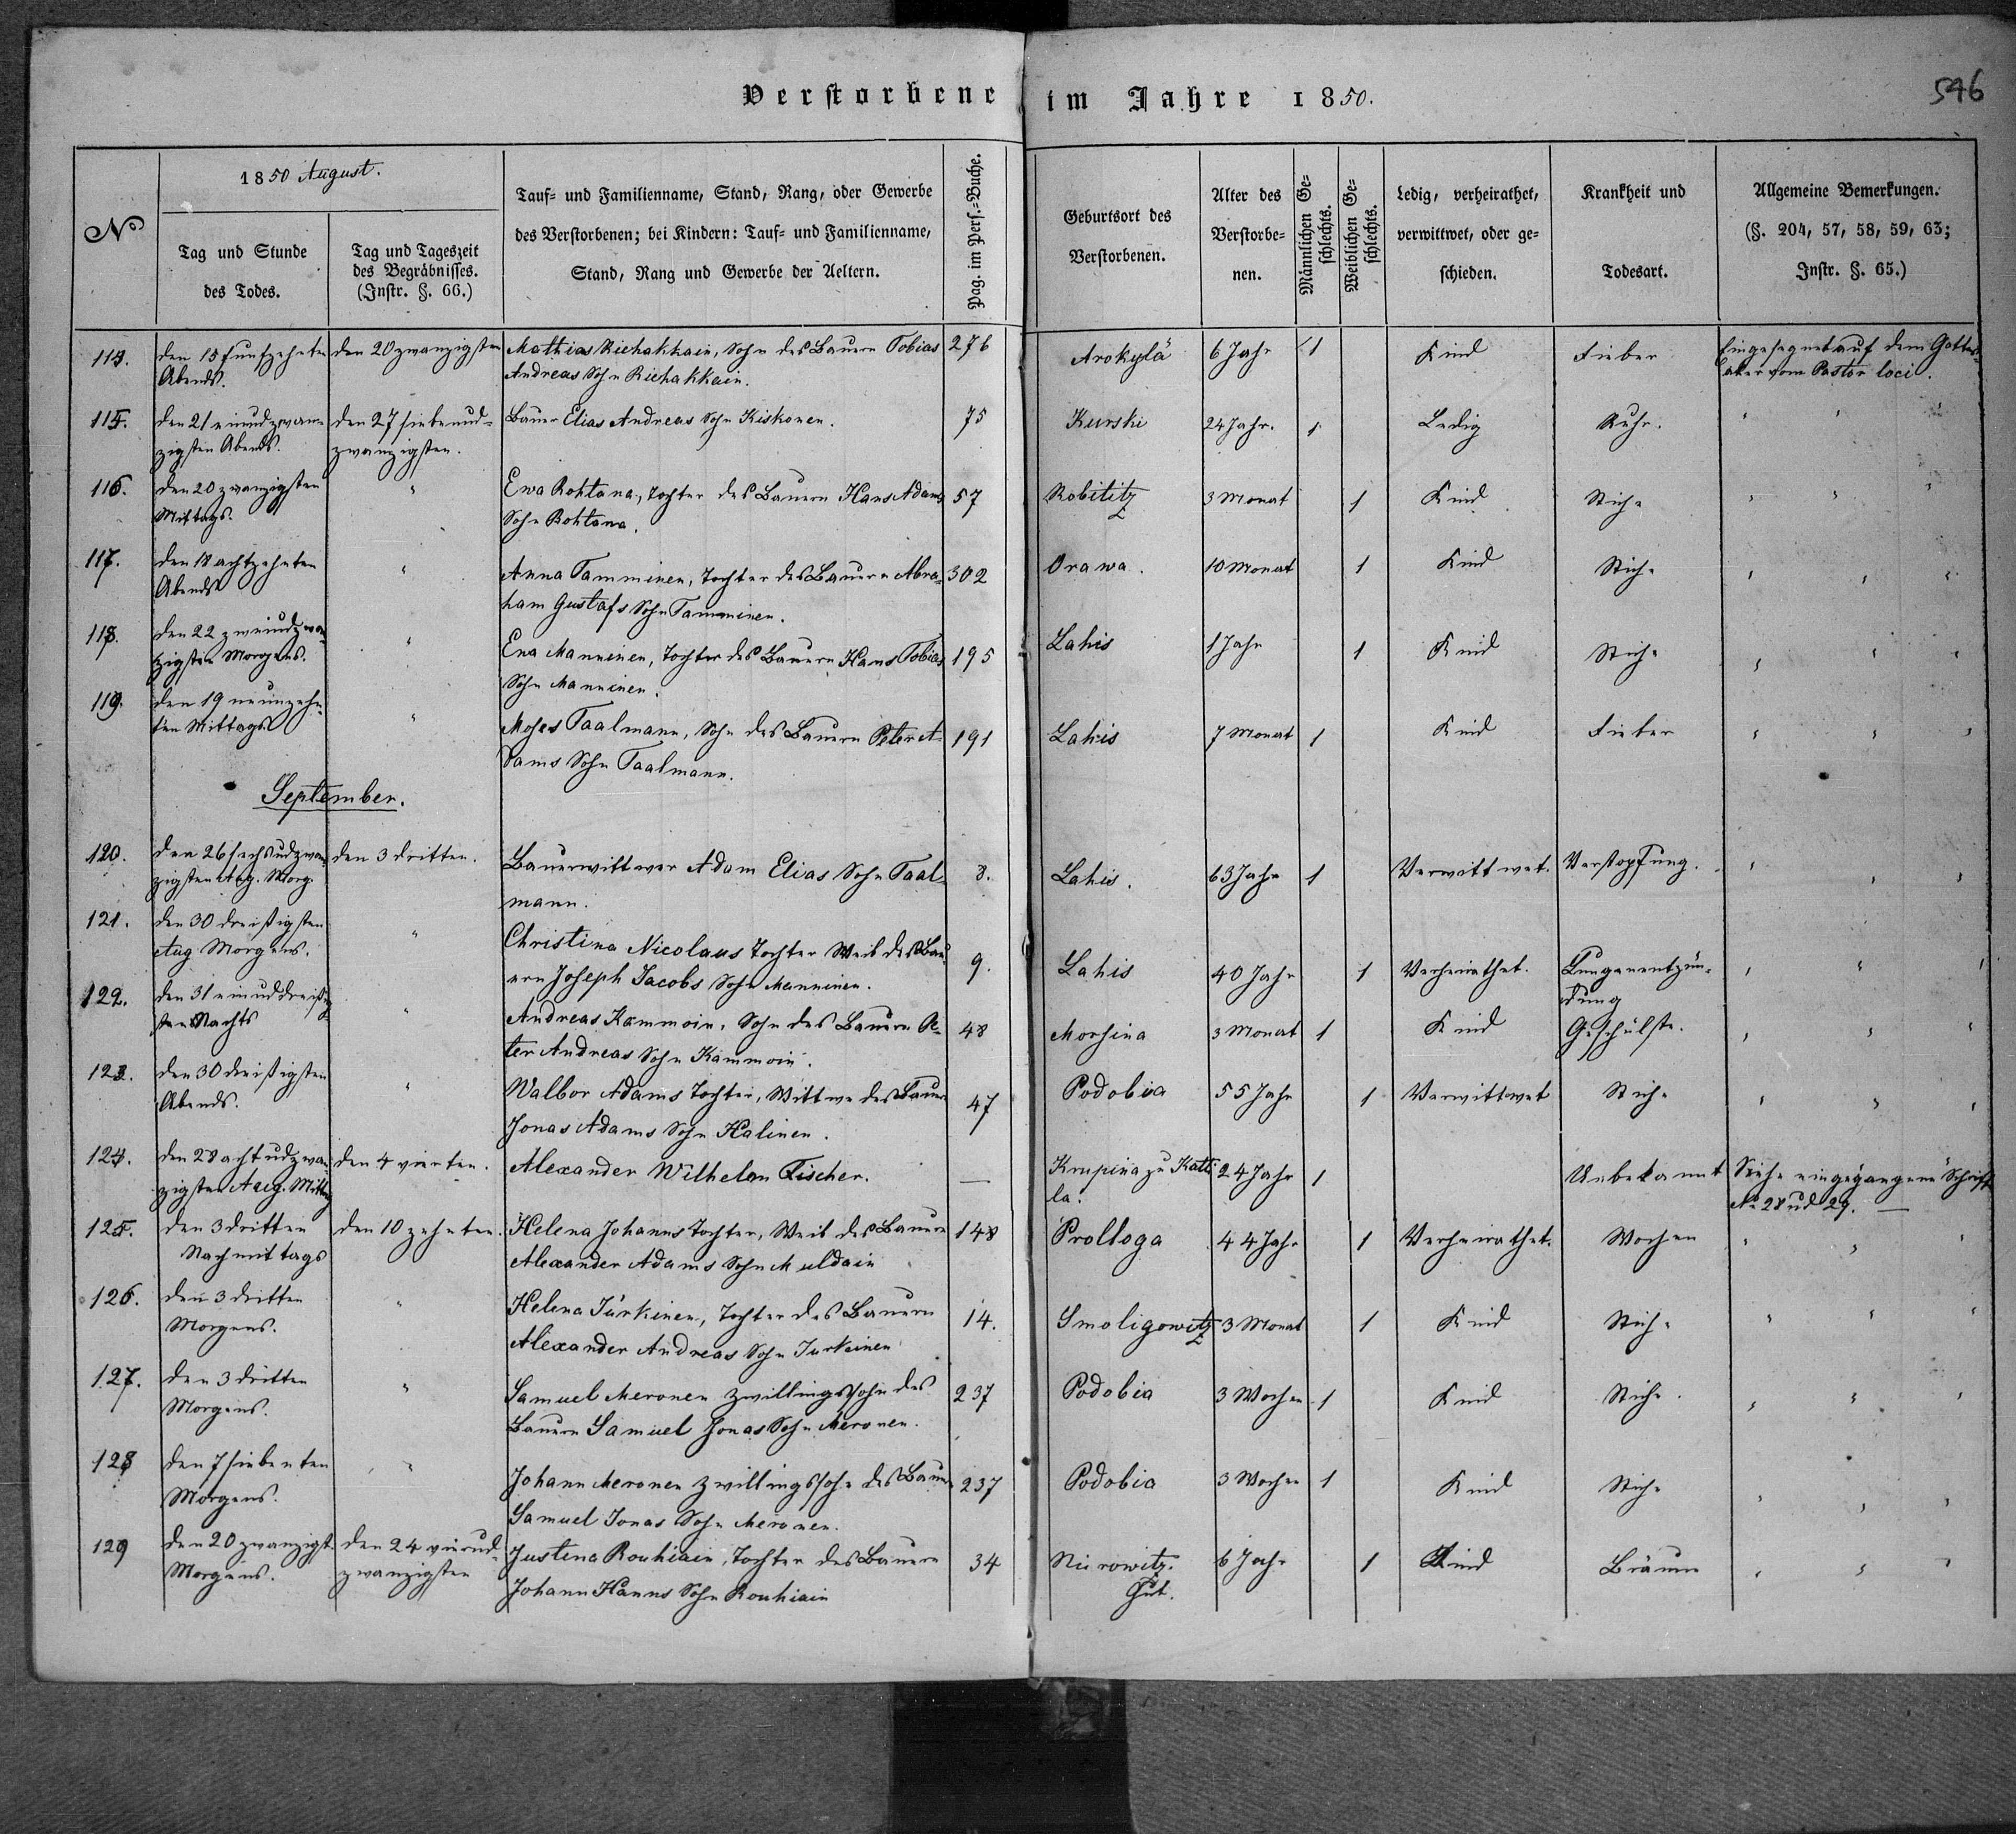 Verstorbene im Jahre 1850.
546
No
1850 August.
Tag und Stunde
des Todes.
Tag und Tageszeit
des Begräbnisses.
(Instr. §. 66.)
Tauf- und Familienname, Stand, Rang, oder Gewerbe
des Verstorbenen; bei Kindern: Tauf- und Familienname,
Stand, Rang und Gewerbe der Aeltern.
Pag. im Pers.-Buche.
Geburtsort des
Verstorbenen.
Alter des
Verstorbe-
nen.
Männlichen Ge-
schlechts.
Weiblichen Ge-
schlechts.
Ledig, verheirathet,
verwittwet, oder ge-
schieden.
Krankheit und
Todesart.
Allgemeine Bemerkungen.
(§. 204, 57, 58, 59, 63;
Instr. §. 65.)
den 15 funfzehnten den 20 zwanzigsten Mathias Riehakkain, Sohn des Bauern Tobias 276 Arokylä 6 Jahr 1 Kind Fieber Eingesegnet auf dem Gottes-
Abends. Andreas Sohn Riehakkain. aker vom Pastor loci.
115. den 21 einudzwan- den 27 siebenud- Bauer Elias Andreas Sohn Kiskonen. 75 Kurski 24 Jahr. 1 Ledig Ruhr. " " "
zigsten Abends. zwanzigsten.
116. den 20 zwanzigsten " Ewa Rohtana, Tochter des Bauern Hans Adams 57 Robititz 3 Monat 1 Kind Stich " " "
Mittags. Sohn Rohtana.
117. den 18 achtzehnten " Anna Tamminen, Tochter des Bauern Abra- 302 Orawa. 10 Monat 1 Kind Stich " " "
Abends ham Gustafs Sohn Tamminen.
118. den 22 zweiudzwan- " Eva Manninen, Tochter des Bauern Hans Tobias 195 Lahis 1 Jahr 1 Kind Stich " " "
zigsten Morgens. Sohn Manninen.
119. den 19 neunzehn- " Moses Taalmann, Sohn des Bauern Peter A- 191 Lahis 7 Monat 1 Kind Fieber " " "
ten Mittags. dams Sohn Taalmann.
September.
120. den 26 sechsudzwan- den 3 dritten. Bauerwittwer Adam Elias Sohn Taal- 8. Lahis. 63 Jahr 1 Verwittwet. Verstopfung. " " "
zigsten Aug. Morg. mann.
121. den 30 dreißigsten " Christina Nicolaus Tochter Weib des Bau- 9. Lahis 40 Jahr 1 Verheirathet. Lungenentzün- " " "
Aug Morgens. ern Joseph Jacobs Sohn Manninen. dung
122. den 31 einuddreißig- " Andreas Kammoin, Sohn des Bauern Pe- 48 Morsina 3 Monat 1 Kind Geschülste. " " "
sten Nachts ter Andreas Sohn Kammoin.
123. den 30 dreißigsten " Walbor Adams Tochter, Wittwe des Bauer 47 Podobia 55 Jahr 1 Verwittwet Stich " " "
Abends. Jonas Adams Sohn Halinen.
124. den 28 achtudzwan- den 4 vierten. Alexander Wilhelm Fischer. — Krupina zu Katti- 24 Jahr 1 Unbekannt Siehe eingegangene Schrift
zigsten Aug. Mittag la. No 28 ud 29. —
125. den 3 dritten den 10 zehnten. Helena Johanns Tochter, Weib des Bauern 148 Prolloga 44 Jahr 1 Verheirathet. Wochen " " "
Nachmittags Alexander Adams Sohn Muldain
126. den 3 dritten " Helena Jurkinen, Tochter des Bauern 14. Smoligowitz 3 Monat 1 Kind Stich " " "
Morgens. Alexander Andreas Sohn Jurkeinen
127. den 3 dritten " Samuel Meronen Zwillingssohn des 237 Podobia 3 Wochen 1 Kind Stich. " " "
Morgens. Bauern Samuel Jonas Sohn Meronen.
128 den 7 siebenten " Johann Meronen Zwillingssohn des Bauern 237 Podobia 3 Wochen 1 Kind Stich " " "
Morgens. Samuel Jonas Sohn Meronen.
129 den 20 zwanzigst. den 24 vierud- Justina Rouhiain, Tochter des Bauern 34 Nirowitz. 6 Jahr 1 Kind Bräune " " "
Morgens. zwanzigsten Johann Hanns Sohn Rouhiain Gut.